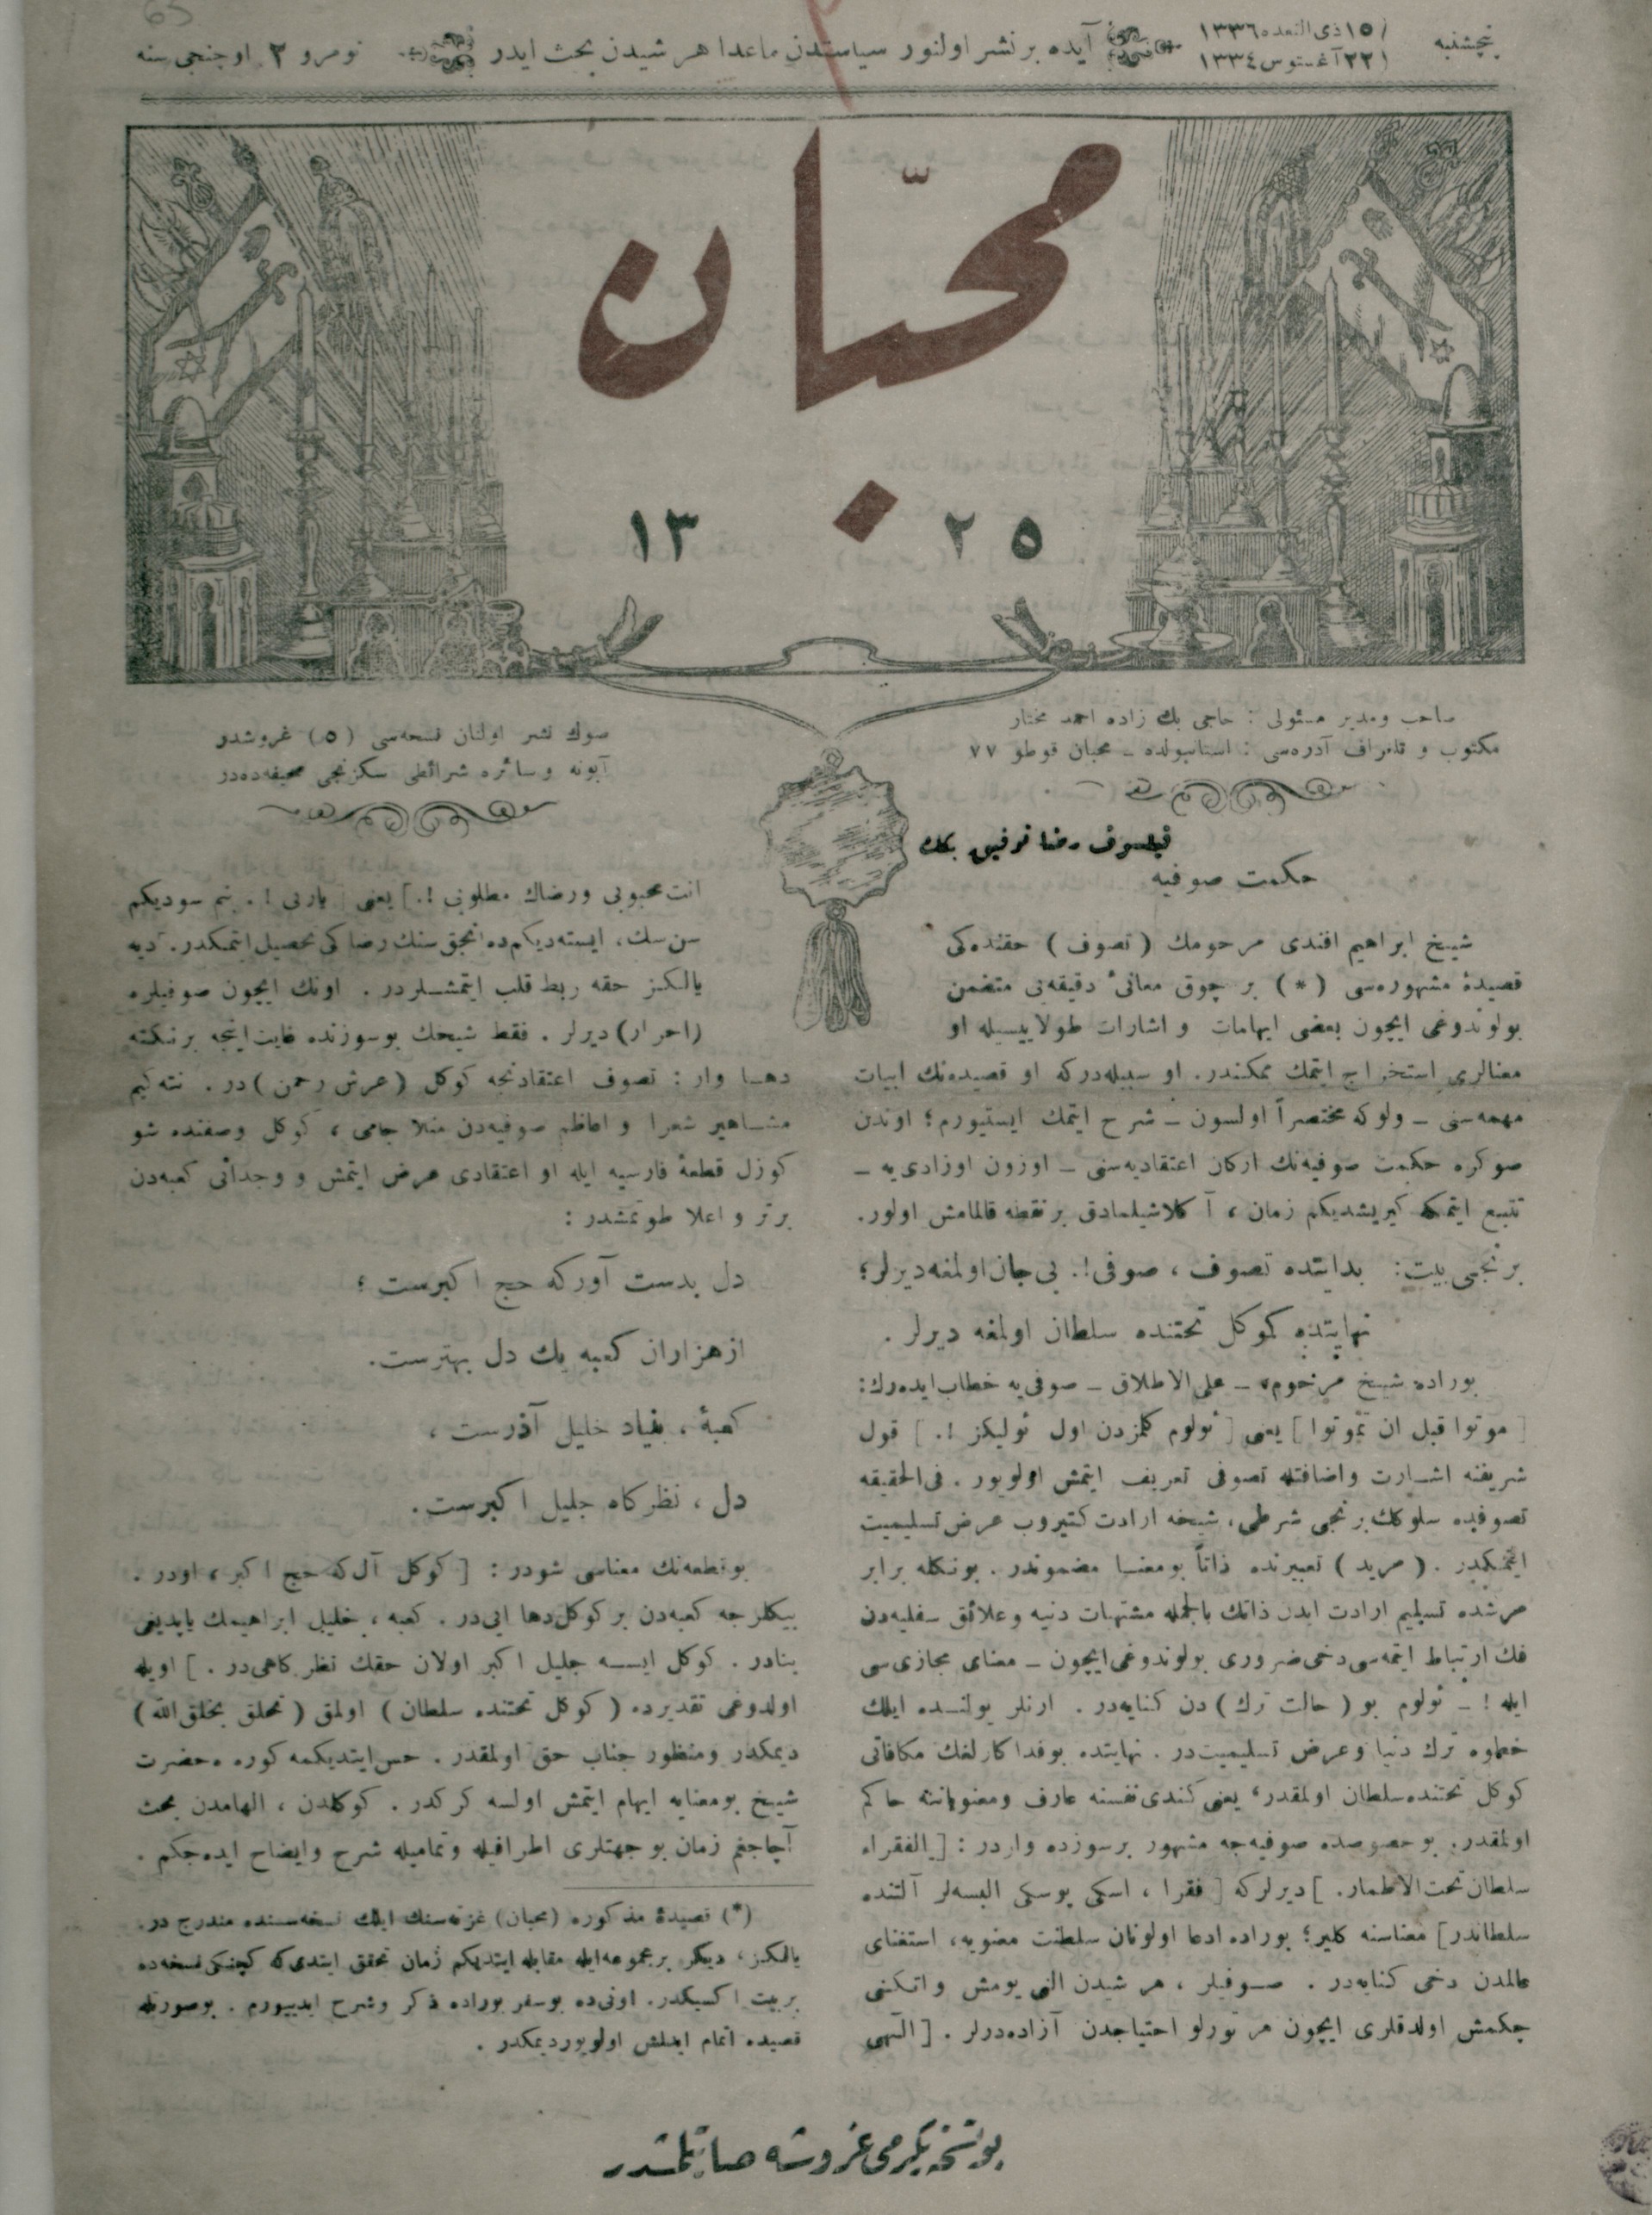 پنجشنبه
١٥ ذی القعده ١٣٣٦
٢٢ آغستوس ١٣٣٤
آیده بر نشر اولنور سیاستدن ماعدا هر شیدن بحث ایدر
نومرو ٢ اوچنجی سنه
محبّان
١٣٢٥
صاحب ومدیر مسئولی : حاجی بك زاده احمد مختار
مکتوب و تلغراف آدره‌سی : استانبولده ـ محبان قوطو ٧٧
صوك نشر اولنان نسخه‌سی (٥) غروشدر
آبونه وسائره شرائطی سکزنجی صحیفه‌ده‌در
فیلسوف رضا توفیق بکك
حکمت صوفیه
شیخ ابراهیم افندی مرحومك ( تصوف ) حقنده‌کی
قصیدهٔ مشهوره‌سی (*) بر چوق معانیٔ دقیقه‌یی متضمن
بولوندوغی ایچون بعضی ایهامات و اشارات طولاییسیله او
معنالری استخراج ایتمك ممکندر. او سببله‌درکه او قصیده‌نك ابیات
مهمه‌سنی ـ ولوکه مختصراً اولسون ـ شرح ایتمك ایستیورم؛ اوندن
صوکره حکمت صوفیه‌نك ارکان اعتقادیه‌سنی ـ اوزون اوزادی‌یه ـ
تتبع ایتمکه کیریشدیکم زمان ، آکلاشیلمادق بر نقطه قالمامش اولور.
برنجی بیت: بدایتده تصوف ، صوفی !. بی جان اولمغه دیرلر؛
نهایتده کوکل تختنده سلطان اولمغه دیرلر .
بوراده شیخ مرحوم، ـ علی الاطلاق ـ صوفی‌یه خطاب ایده‌رك:
[ موتوا قبل ان تموتوا ] یعنی [ ئولوم کلمزدن اول ئولیکز !. ] قول
شریفنه اشارت واضافتله تصوفی تعریف ایتمش اولویور . فی الحقیقه
تصوفده سلوکك برنجی شرطی، شیخه ارادت کتیروب عرض تسلیمیت
ایتمکدر . ( مرید ) تعبیرنده ذاتاً بو معنا مضموندر . بونکله برابر
مرشده تسلیم ارادت ایدن ذاتك بالجمله مشتهیات دنیه وعلائق سفلیه‌دن
فك ارتباط ایتمه‌سی دخی ضروری بولوندوغی ایچون ـ معنای مجازی‌سی
ایله ! ـ ئولوم بو ( حالت ترك ) دن کنایه‌در . ارنلر یولنده ایلك
خطوه ترك دنیا وعرض تسلیمیت‌در . نهایتده بو فداکارلغك مکافاتی
کوکل تختنده سلطان اولمقدر، یعنی کندی نفسنه عارف ومعنویاتنه حاکم
اولمقدر. بو خصوصده صوفیه‌جه مشهور بر سوزده واردر : [ الفقراء
سلطان تحت الاطمار. ] دیرلرکه [ فقرا ، اسکی پوسکی البسه‌لر آلتنده
سلطاندر] معناسنه کلیر؛ بوراده ادعا اولونان سلطنت معنویه، استغنای
عالمدن دخی کنایه‌در . صوفیلر ، هر شیدن الی یومش واتکنی
چکمش اولدقلری ایچون هر تورلو احتیاجدن آزاده‌درلر . [ الٓهی
انت محبوبی ورضاك مطلوبی !. ] یعنی [ یاربی !. بنم سودیکم
سن سك، ایسته‌دیکم‌ده انجق سنك رضاکی تحصیل ایتمکدر. ] دیه
یالکز حقه ربط قلب ایتمشلردر . اونك ایچون صوفیلره
(احرار) دیرلر . فقط شیخك بو سوزنده غایت اینجه بر نکته
دها وار : تصوف اعتقادنجه کوکل (عرش رحمن) در . نته‌کیم
مشاهیر شعرا و اعاظم صوفیه‌دن منلا جامی ، کوکل وصفنده شو
کوزل قطعهٔ فارسیه ایله او اعتقادی عرض ایتمش و وجدانی کعبه‌دن
برتر و اعلا طوتمشدر :
دل بدست آورکه حج اکبرست ؛
از هزاران کعبه یك دل بهترست.
کعبهٔ ، بنیاد خلیل آذرست ،
دل ، نظرکاه جلیل اکبرست.
بو قطعه‌نك معناسی شودر : [ کوکل آل که حج اکبر ، اودر .
بیکلرجه کعبه‌دن بر کوکل دها ایی‌در . کعبه ، خلیل ابراهیمك یاپدیغی
بنادر . کوکل ایسه جلیل اکبر اولان حقك نظرکاهی‌در . ] اویله
اولدوغی تقدیرده ( کوکل تختنده سلطان ) اولمق ( تخلق بخلق الله )
دیمکدر ومنظور جناب حق اولمقدر . حس ایتدیکمه کوره ، حضرت
شیخ بو معنایه ایهام ایتمش اولسه کرکدر . کوکلدن ، الهامدن بحث
آچاجغم زمان بو جهتلری اطرافیله وتمامیله شرح وایضاح ایده‌جکم .
(*) قصیدهٔ مذکوره (محبان) غزته‌سنك ایلك نسخه‌سنده مندرج در.
یالکز ، دیکر بر مجموعه ایله مقابله ایتدیکم زمان تحقق ایتدی که کچنکی نسخه‌ده
بر بیت اکسیکدر. اونی‌ده بو سفر بوراده ذکر وشرح ایدییورم . بو صورتله
قصیده اتمام ایدلمش اولویور دیمکدر .
بو نسخه یکرمی غروشه صاتلمشدر